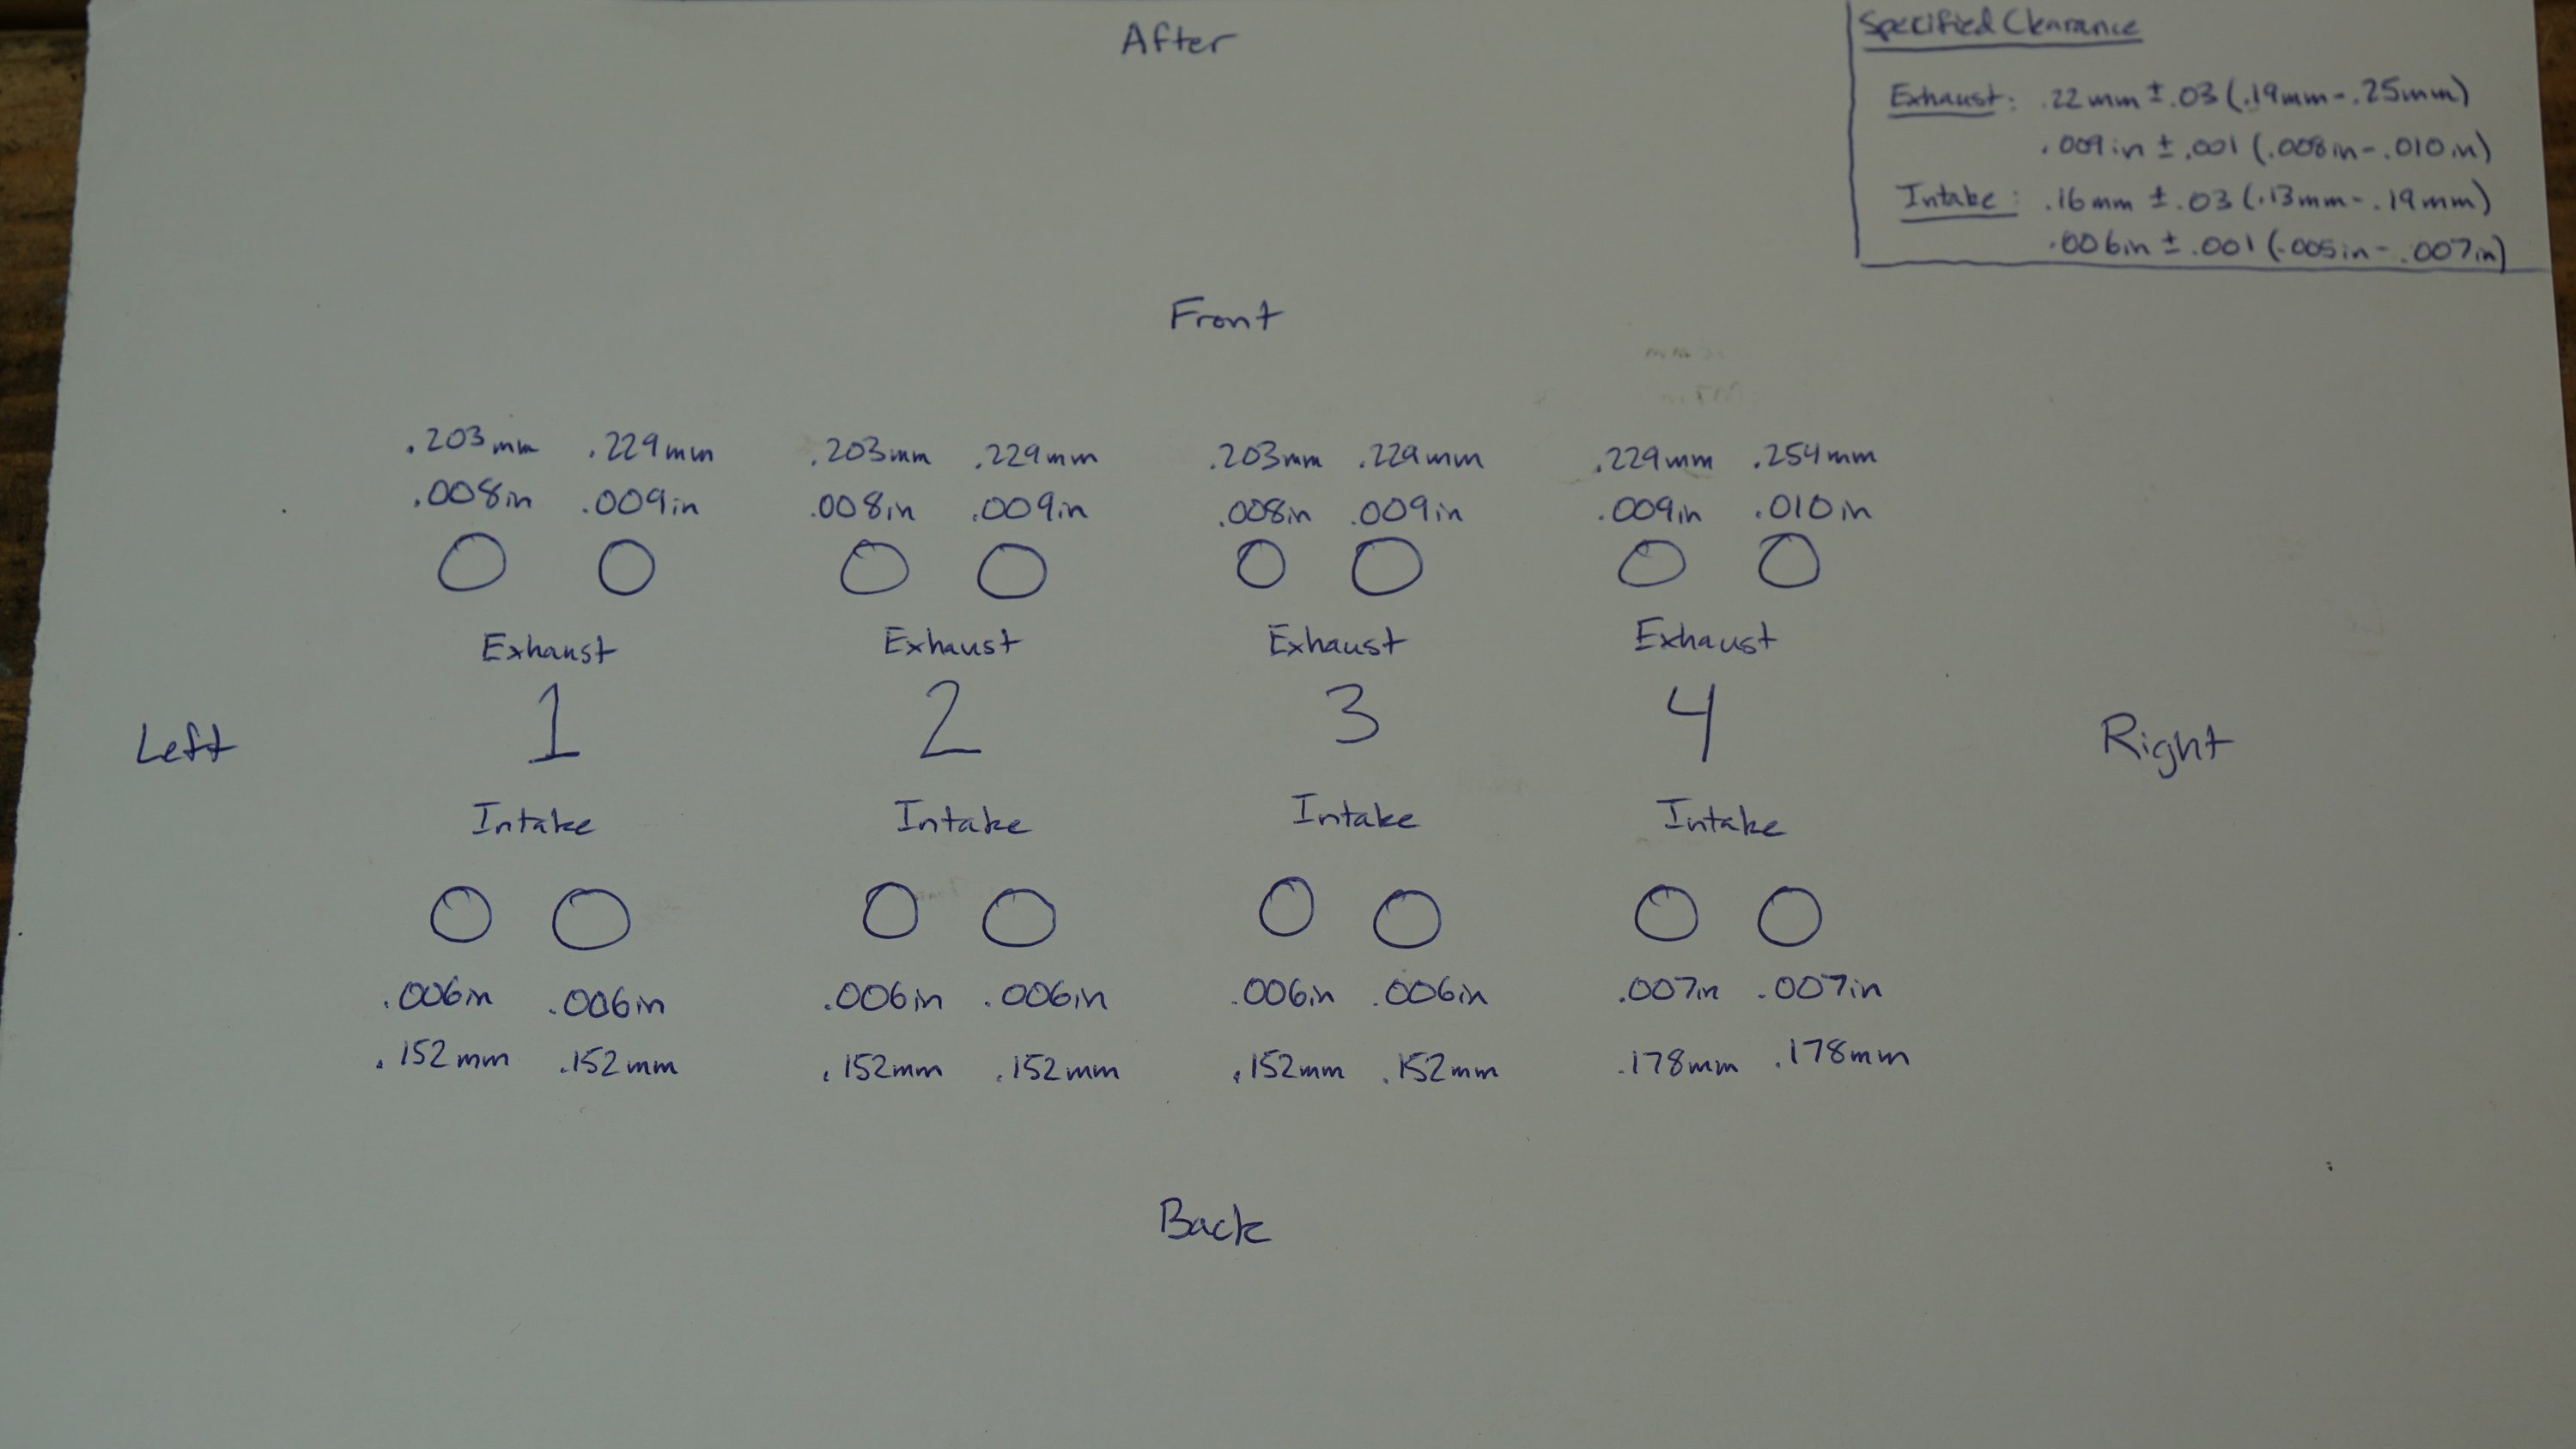 After
Specified Clearance
Exhaust: .22mm ± .03 (.19mm - .25mm)
.009in ± .001 (.008in - .010in)
Intake: .16mm ± .03 (.13mm - .19mm)
.006in ± .001 (.005in - .007in)
Front
.203mm .229mm .203mm .229mm .203mm .229mm .229mm .254mm
.008in .009in .008in .009in .008in .009in .009in .010in
Exhaust Exhaust Exhaust Exhaust
Left 1 2 3 4 Right
Intake Intake Intake Intake
.006in .006in .006in .006in .006in .006in .007in .007in
.152mm .152mm .152mm .152mm .152mm .152mm .178mm .178mm
Back